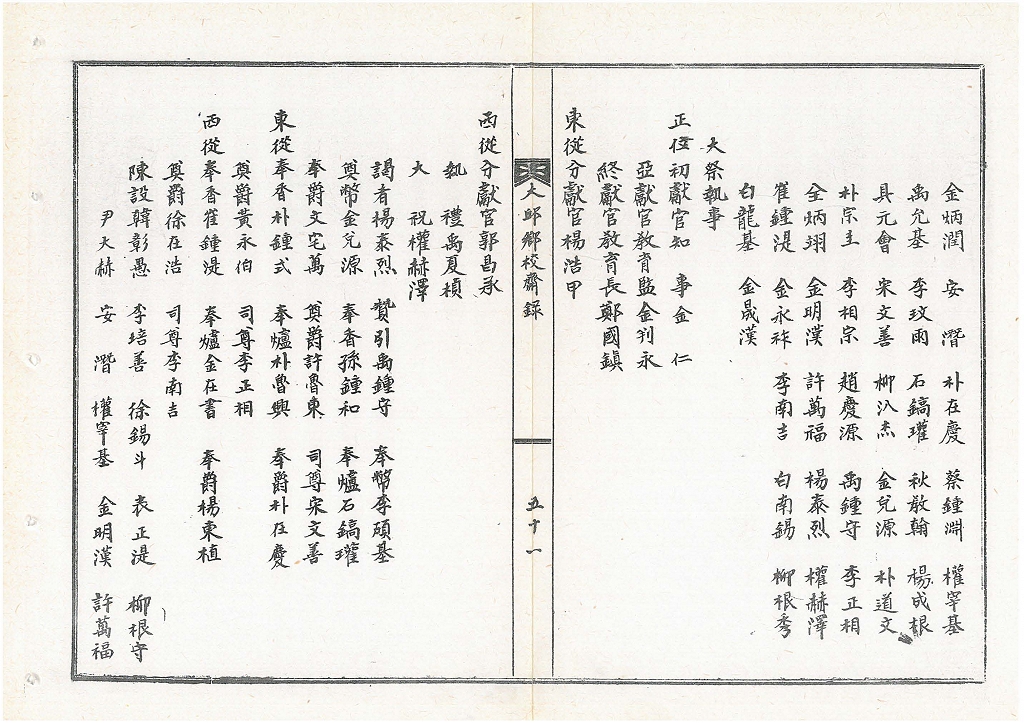 金炳潤 安潛 朴在慶 蔡鍾淵 權寧基
禹允基 李玟雨 石鎬瓘 秋敎翰 楊成根
具元會 宋文善 柳汃杰 金兌源 朴道文
朴宗圭 李相宗 趙慶源 禹鍾守 李正相
全炳翊 金明漢 許萬福 楊泰烈 權赫澤
崔鍾湜 金永祚 李南吉 白南錫 柳根秀
白龍基 金晟漢
大祭執事
正位初獻官知事金仁
亞獻官敎育監金判永
終獻官敎育長鄭國鎭
東從分獻官楊浩甲
大邱鄕校齋録
五十一
西從分獻官郭昌承
執禮禹夏楨
大祝權赫澤
謁者楊泰烈 贊引禹鍾守 奉幣李碩基
奠幣金兌源 奉香孫鍾和 奉爐石鎬瓘
奉爵文宅萬 奠爵許魯東 司尊宋文善
東從奉香朴鍾式 奉爐朴魯興 奉爵朴在慶
奠爵黃永伯 司尊李正相
西從奉香崔鍾湜 奉爐金在書 奉爵楊東植
奠爵徐在浩 司尊李南吉
陳設韓彰愚 李培善 徐錫斗 袁正湜 柳根守
尹大赫 安潛 權寧基 金明漢 許萬福